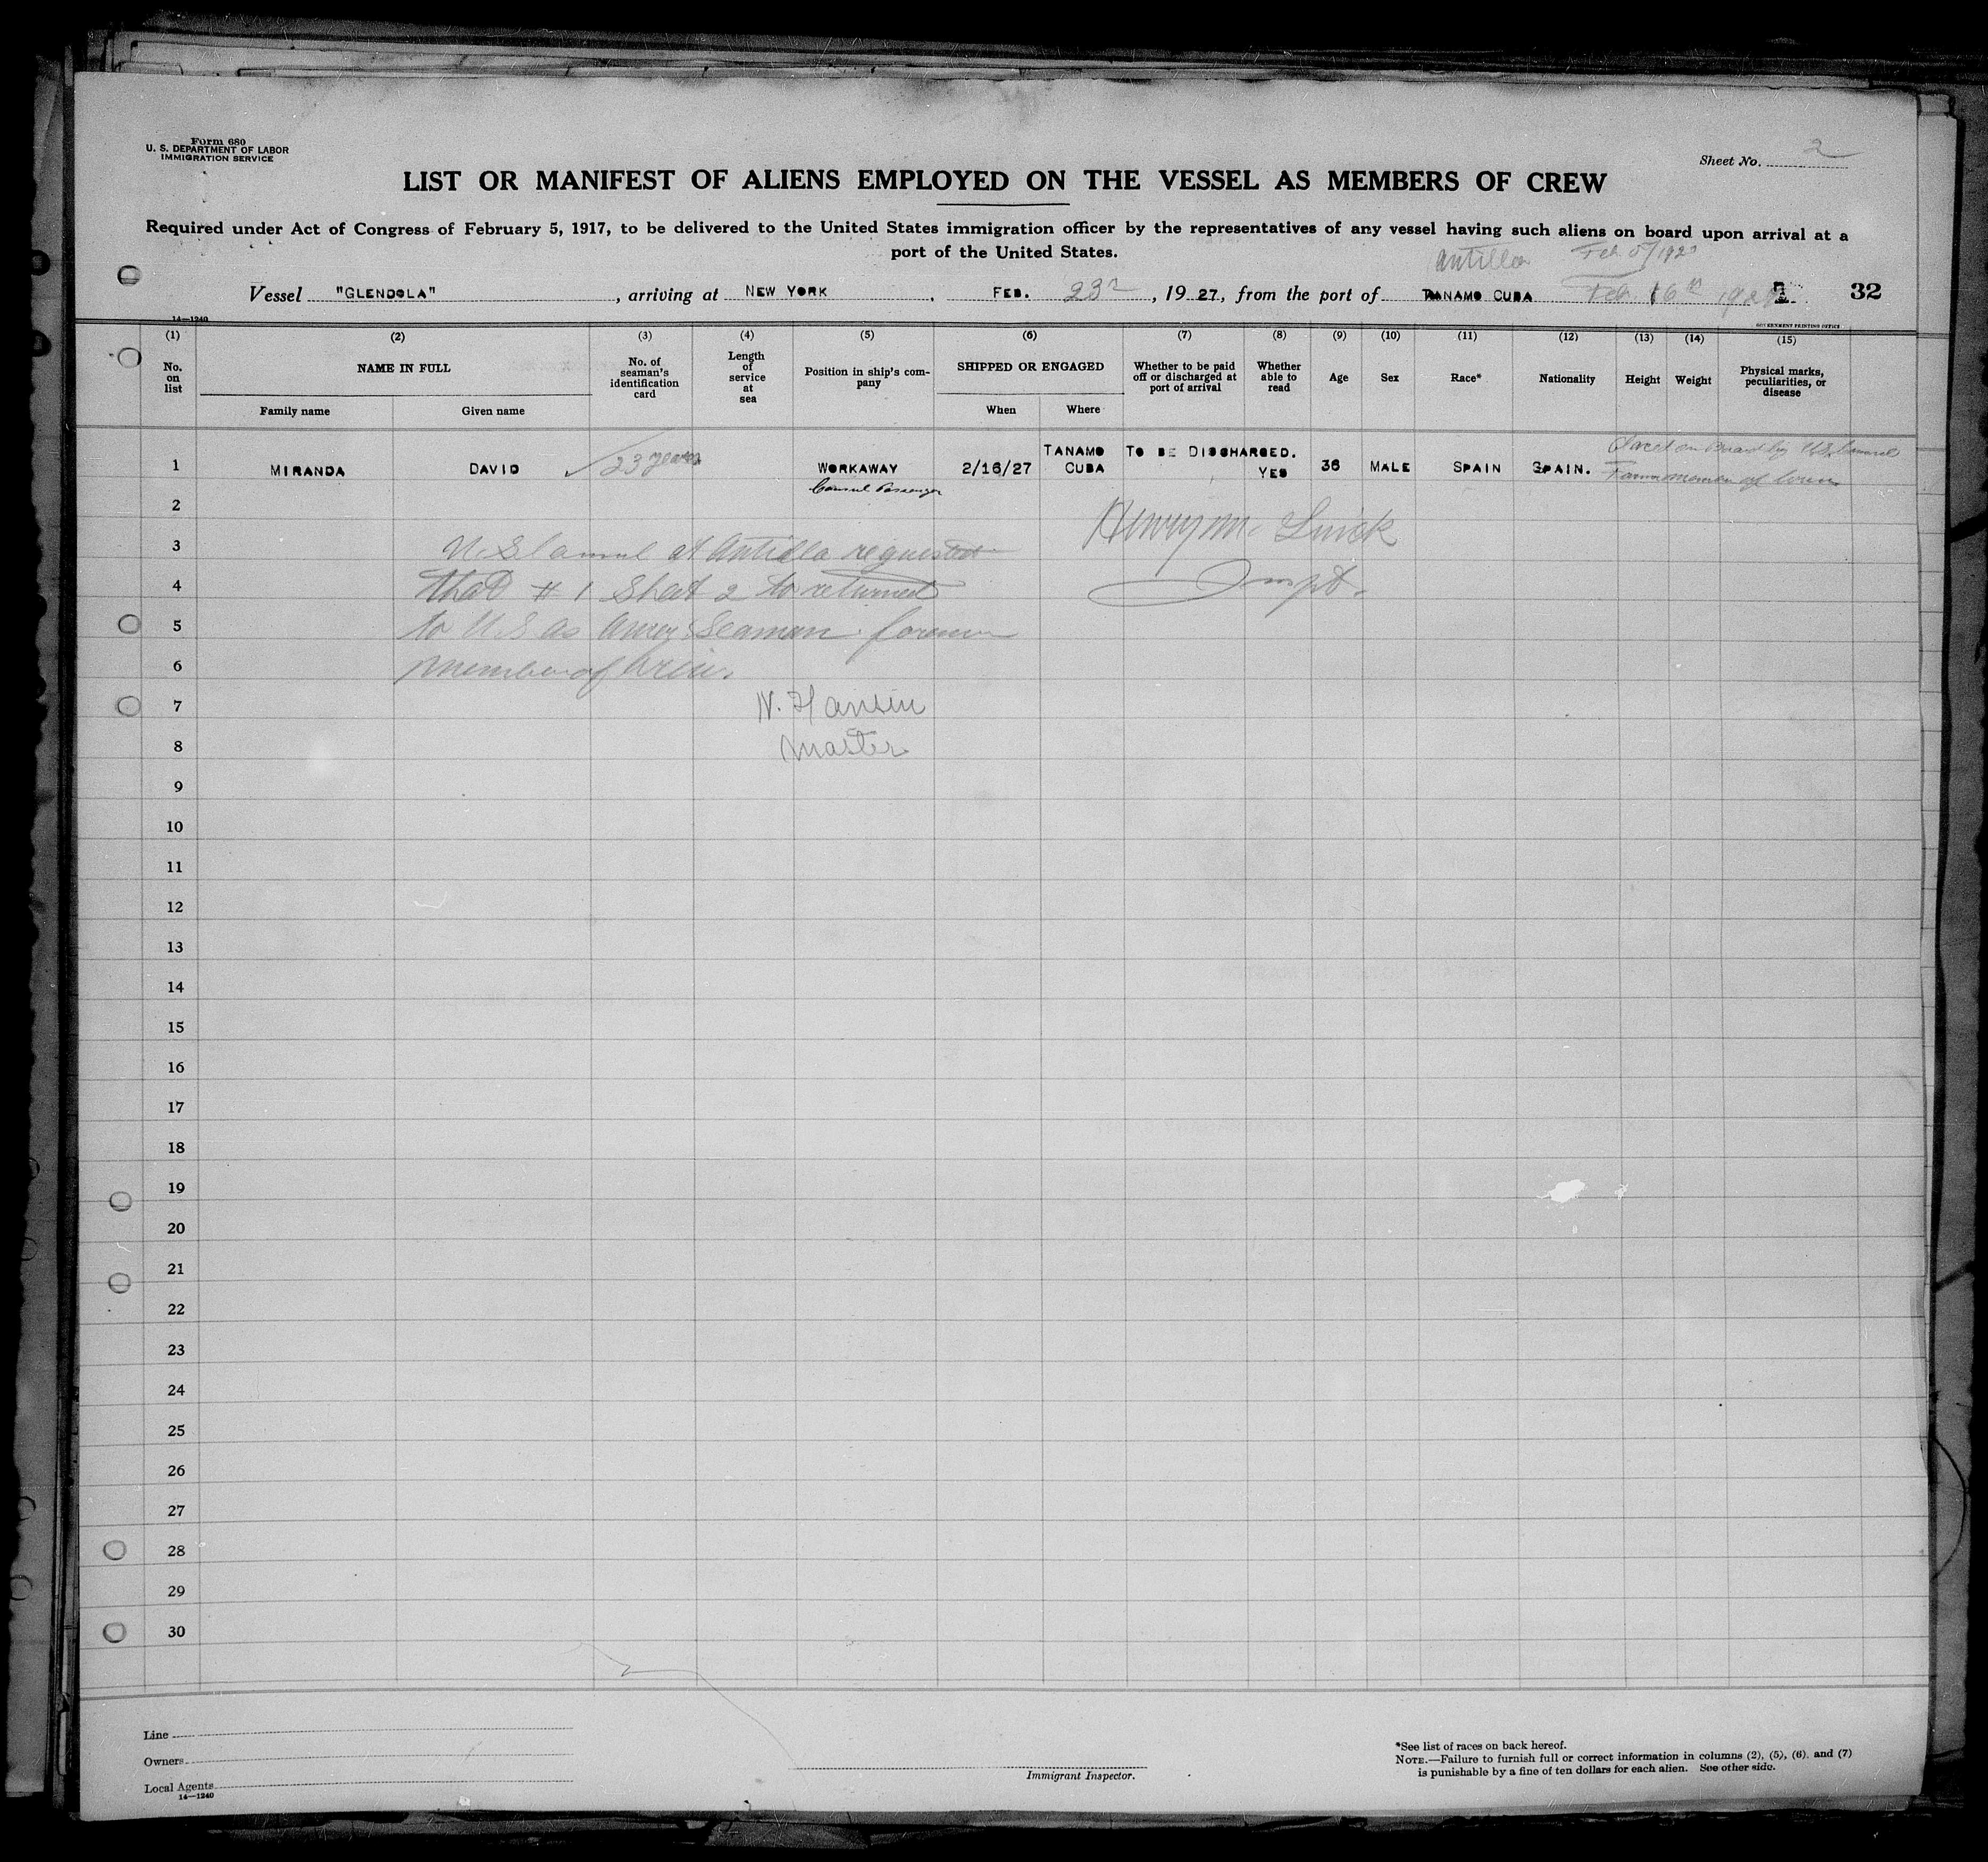 Form 680
U. S. DEPARTMENT OF LABOR
IMMIGRATION SERVICE
Sheet No. 2
LIST OR MANIFEST OF ALIENS EMPLOYED ON THE VESSEL AS MEMBERS OF CREW
Required under Act of Congress of February 5, 1917, to be delivered to the United States immigration officer by the representatives of any vessel having such aliens on board upon arrival at a
port of the United States.
Antilla Feb 5/192
Vessel "GLENDOLA", arriving at NEW YORK, FEB. 23, 1927, from the port of TANAMO CUBA Feb 16th 1927 32
14—1240
GOVERNMENT PRINTING OFFICE
(1) (2) (3) (4) (5) (6) (7) (8) (9) (10) (11) (12) (13) (14) (15)
No. on list
NAME IN FULL
Family name
Given name
No. of seaman's identification card
Length of service at sea
Position in ship's company
SHIPPED OR ENGAGED
When
Where
Whether to be paid off or discharged at port of arrival
Whether able to read
Age
Sex
Race*
Nationality
Height
Weight
Physical marks, peculiarities, or disease
1 MIRANDA DAVID 23 years WORKAWAY 2/16/27 TANAMO CUBA TO BE DISCHARGED. YES 36 MALE SPAIN SPAIN.
Consul Passenger
on Board by U.S. Consul
member of Crew
2
Henry M.
3
U.S. Consul at Antilla requested
4
that # 1 Sheet 2 be returned
Inspt.
5
to U.S as Amer Seaman former
6
member of Crew.
7
N. Hansen
8
Master
9
10
11
12
13
14
15
16
17
18
19
20
21
22
23
24
25
26
27
28
29
30
Line
Owners
Local Agents
14—1240
Immigrant Inspector.
*See list of races on back hereof.
NOTE.—Failure to furnish full or correct information in columns (2), (5), (6), and (7)
is punishable by a fine of ten dollars for each alien. See other side.